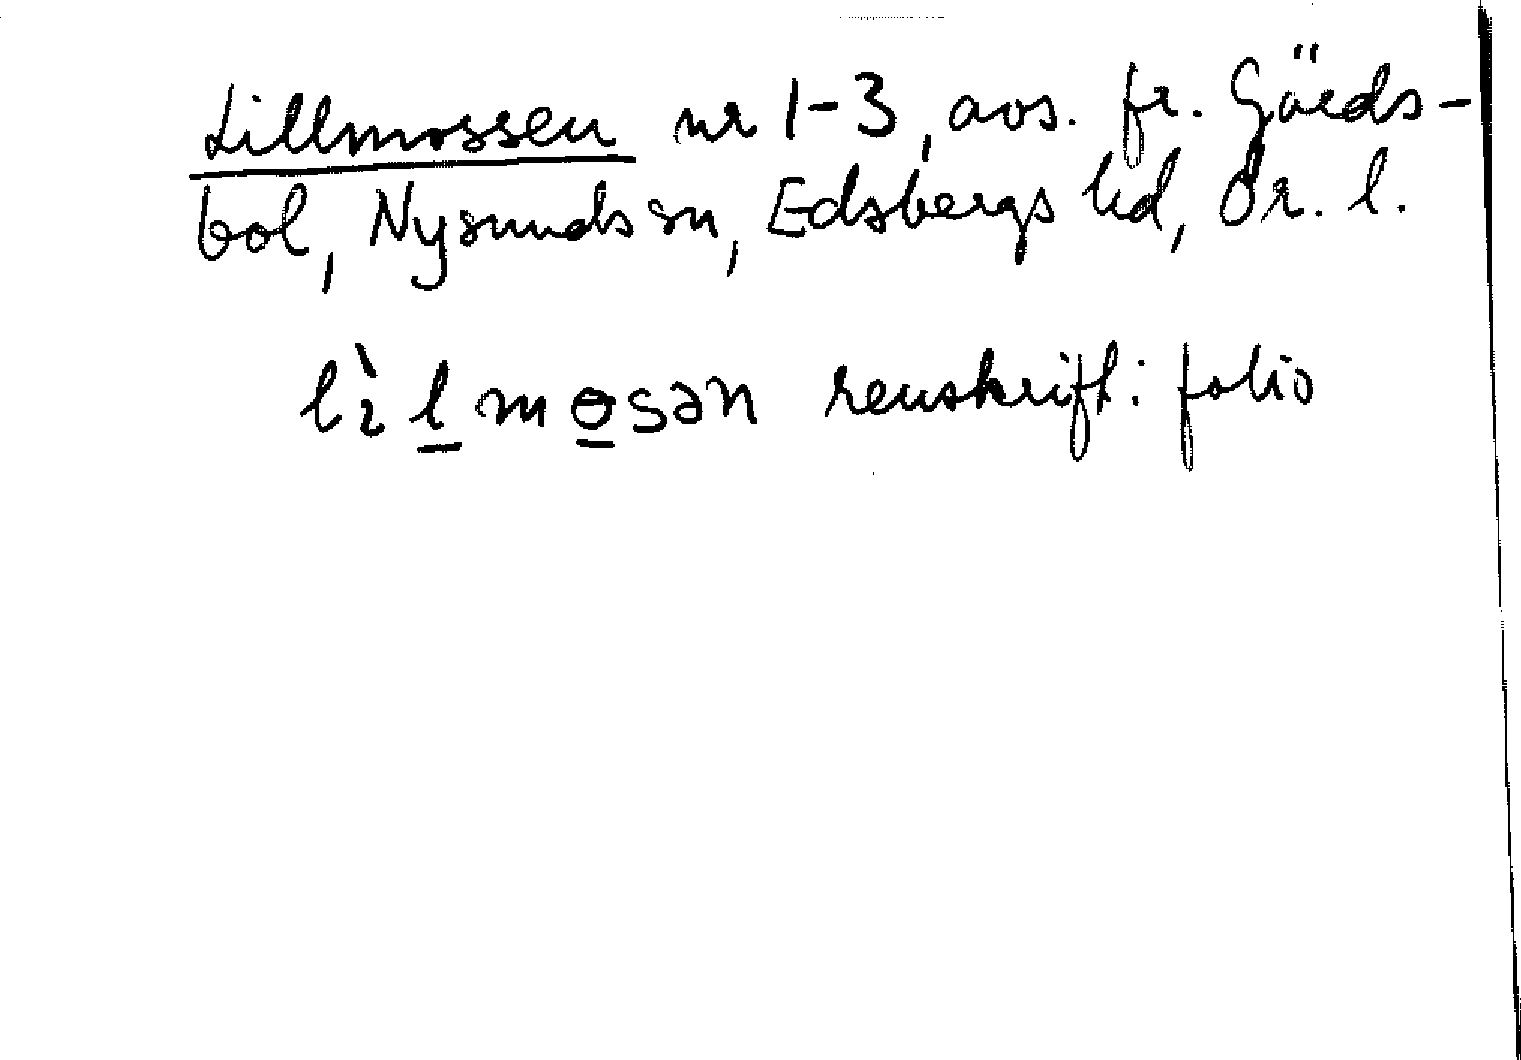 Lillmossen nr 1-3, avs. fr. Gärds-
bol, Nysunds sn, Edsbergs hd, Ör. l.
lìl mɵsən renskrift: folio